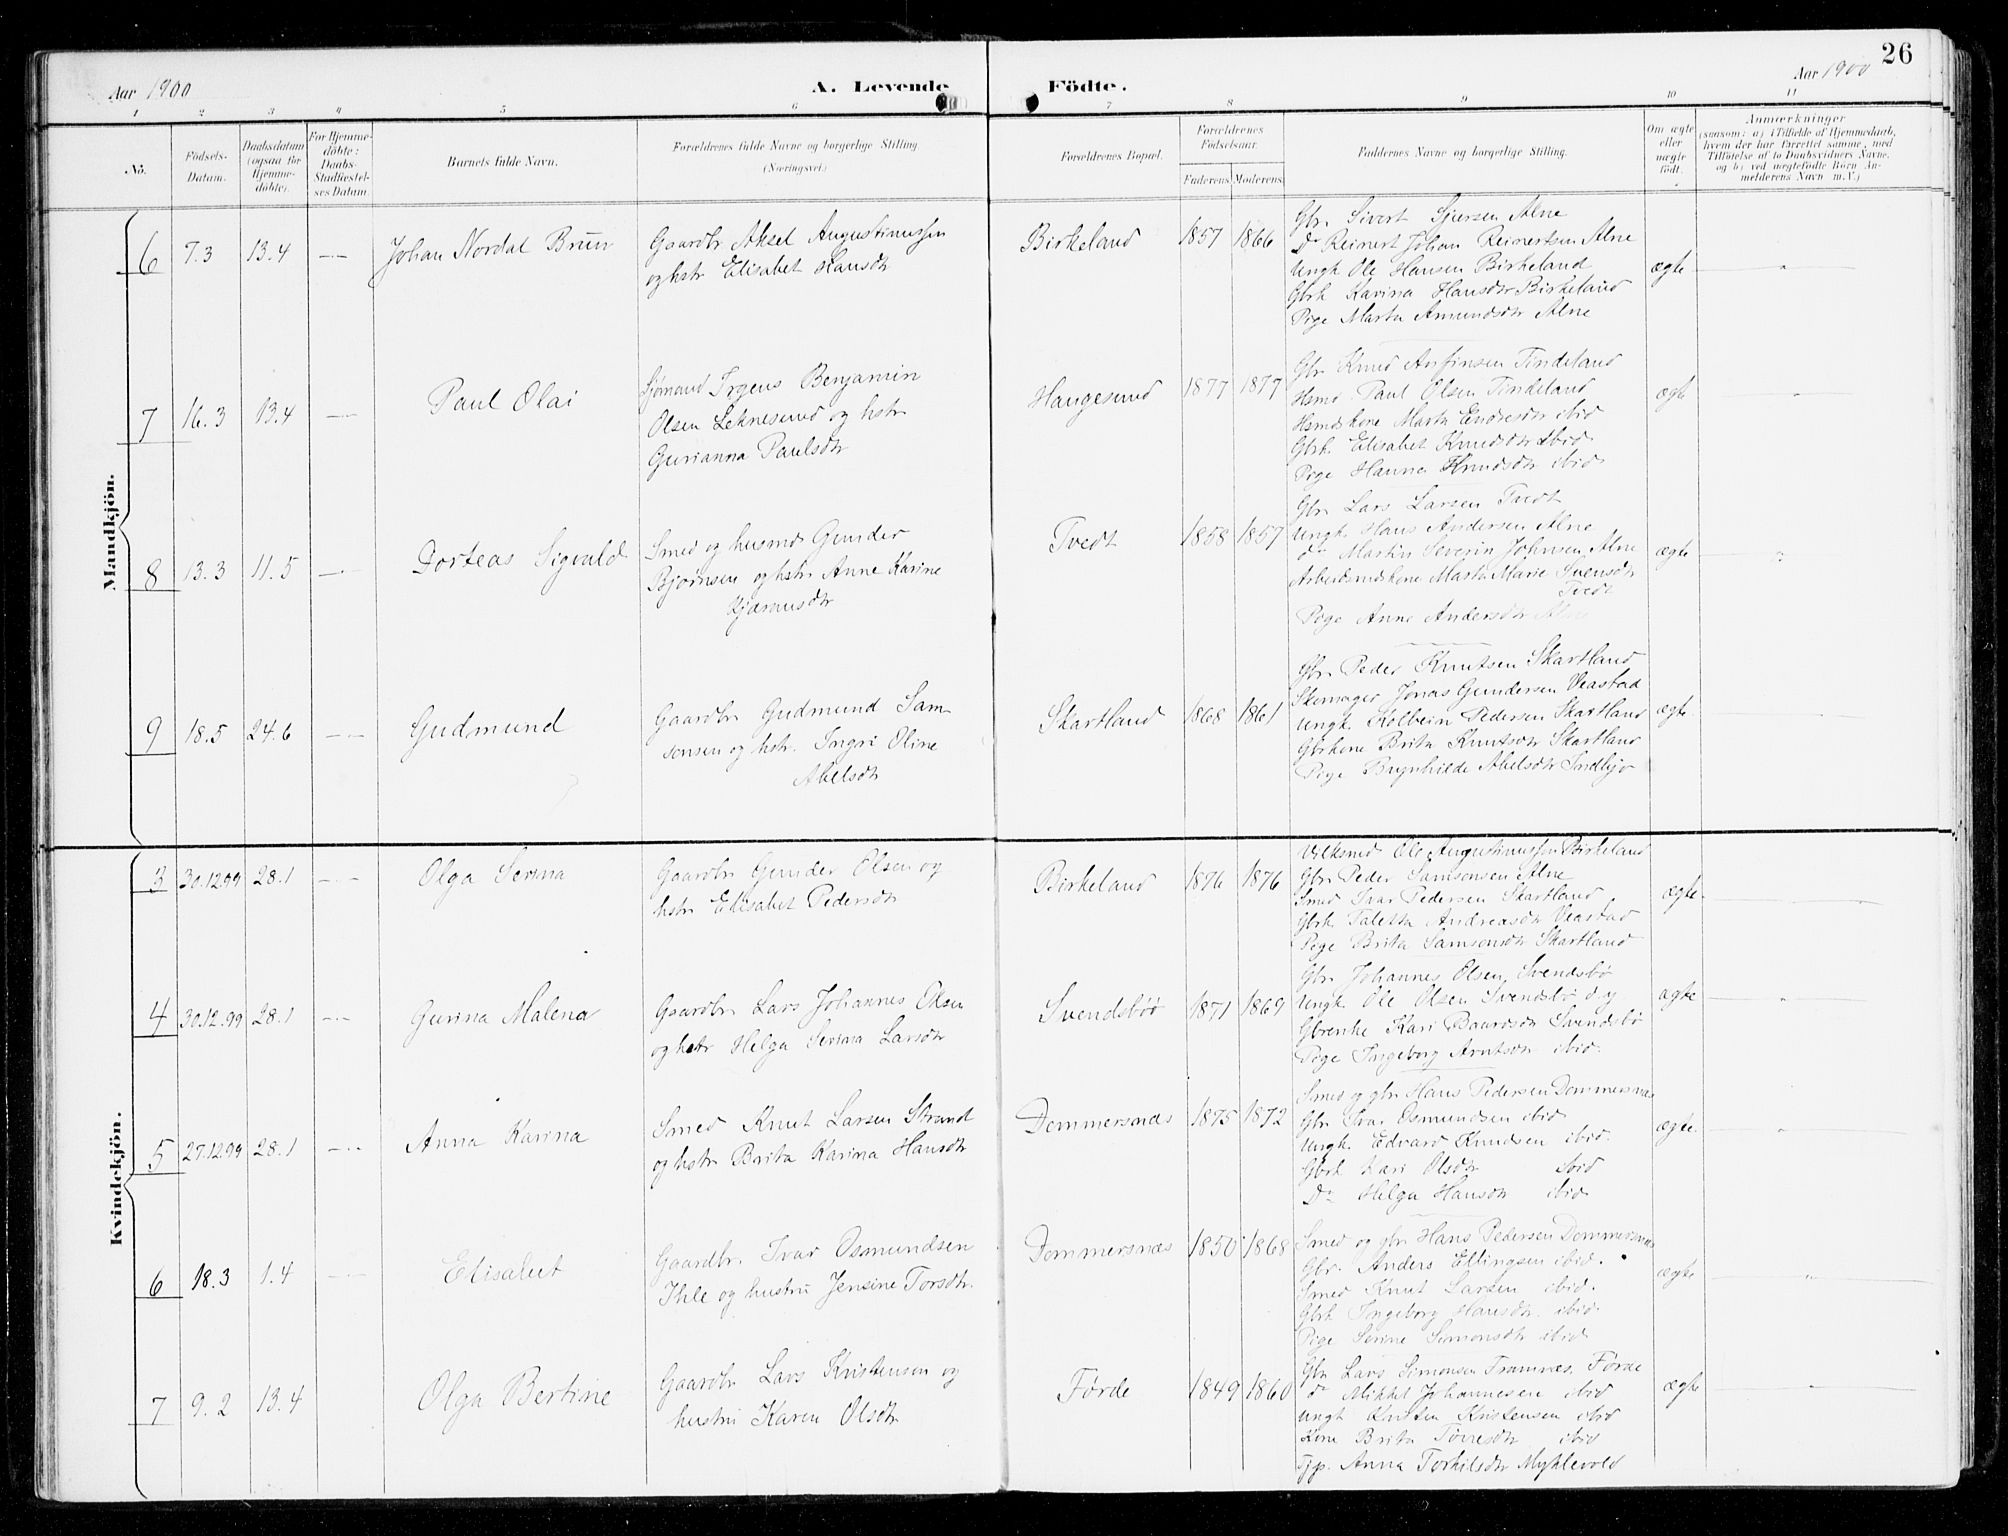 26
Aar 1900
A. Levende
Födte.
Aar 1900
1 2 3 4 5 6 7 8 9 10 11
No.
Födsels-Datum.
Daabsdatum (ogsaa for Hjemme-döbte).
For Hjemme-döbte: Daabs-Stadfæstel-ses Datum.
Barnets fulde Navn.
Forældrenes fulde Navne og borgerlige Stilling. (Næringsvei.)
Forældrenes Bopæl.
Forældrenes Födselsaar.
Faderens. Moderens.
Faddernes Navne og borgerlige Stilling.
Om ægte eller uægte født.
Anmærkninger
(saasom: a) i Tilfælde af Hjemmedaab,
hvem der har forrettet samme, med
Tilføielse af to Daabsvidners Navne,
og b) ved uægtefödte Börn An-
melderens Navn m.V.)
Mandkjön.
6 7.3 13.4 Johan Nordal Brun
Gaardbr Aksel Augustinussen
og hstr Elisabet Hansdtr
Birkeland 1857 1866
Gbr. Sivert Sjursen Alne
Do Reinert Johan Reinertsen Alne
Ungk Ole Hansen Birkeland
Gbrk Karina Hansdtr Birkeland
Pige Marta Amundsdtr Alne
ægte
7 16.3 13.4 Paul Olai
Sjømand Irgens Benjamin
Olsen Leknesund og hstr
Gurianna Paulsdtr
Haugesund 1877 1877
Gbr Knud Anfinsen Tindeland
Hsmd. Paul Olsen Tindeland
Hsmdskone Marta Endresdtr ibid
Gbrk. Elisabet Knudsdtr ibid.
Pige Hanna Knudsdtr ibid.
ægte
8 13.3 11.5 Dorteas Sigvald
Smed og husmd Gunder
Bjørnsen og hstr Anne Karine
Bjørnsdtr
Tvedt 1858 1857
Gbr Lars Larsen Tvedt
Ungk. Hans Andersen Alne
do Martin Severin Johnsen Alne
Arbeidsmdskone Marta Marie Svensdtr
Tvedt
Pige Anne Andersdtr Alne
ægte
9 18.5 24.6 Gudmund
Gaardbr Gudmund Sam-
sonsen og hstr. Ingri Oline
Abelsdtr
Skartland 1868 1861
Gbr Peder Knutsen Skartland
Skomager Jonas Gundersen Veastad
Ungk. Kolbein Pedersen Skartland
Gbrkone Brita Knutsdtr Skartland
Pige Brynhilde Abelsdtr
ægte.
Kvindekjön.
3 30.12.99 28.1 Olga Serina
Gaardbr Gunder Olsen og
hstr Elisabet Pedersdtr
Birkeland 1876 1876
Ole Augustinussen Birkeland
Gbr Peder Samsonsen Alne
Smed Ivar Pedersen Skartland
Gbrk Taletta Andreasdtr Veastad
Pige Brita Samsonsdtr Skartland
ægte.
4 30.12.99 28.1 Gurina Malena
Gaardbr Lars Johannes Olsen
og hstr Helga Serina Larsdtr
Svendsbø 1871 1869
Gbr Johannes Olsen Svendsbø
Ungk. Ole Olsen Svendsbø d.y.
Gbrenke Kari Baardsdtr Svendsbø
Pige Ingeborg Arntsdtr ibid.
ægte
5 27.12.99 28.1 Anna Karina
Smed Knut Larsen Strand
og hstr Brita Karina Hansdtr
Dommersnæs 1875 1872
Smed og gbr Hans Pedersen Dommersnæs
Gbr Ivar Osmundsen ibid
Ungk. Edvard Knudsen ibid.
Gbrk Kari Olsdtr ibid
Do Helga Hansdtr ibid
ægte.
6 18.3 1.4 Elisabet
Gaardbr. Ivar Osmundsen
Ihle og hustru Jensine Torsdtr.
Dommersnæs 1850 1868
Smed og gbr Hans Pedersen Dommersnæs
Gbr. Anders Ellingsen ibid.
Smed Knut Larsen ibid.
Gbrk Ingeborg Hansdtr. ibid.
Pige Serine Simonsdtr ibid
ægte
7 9.2 13.4 Olga Bertine
Gaardbr Lars Kristensen og
hustru Karen Olsdtr
Førde 1849 1860
Gbr Lars Simonsen Framnæs, Førde
do Mikkel Johannesen ibid
Ungk Kristen Kristensen ibid
Kone Brita Tørresdtr ibid
Tjp. Anna Torkilsdtr Myklevold
ægte